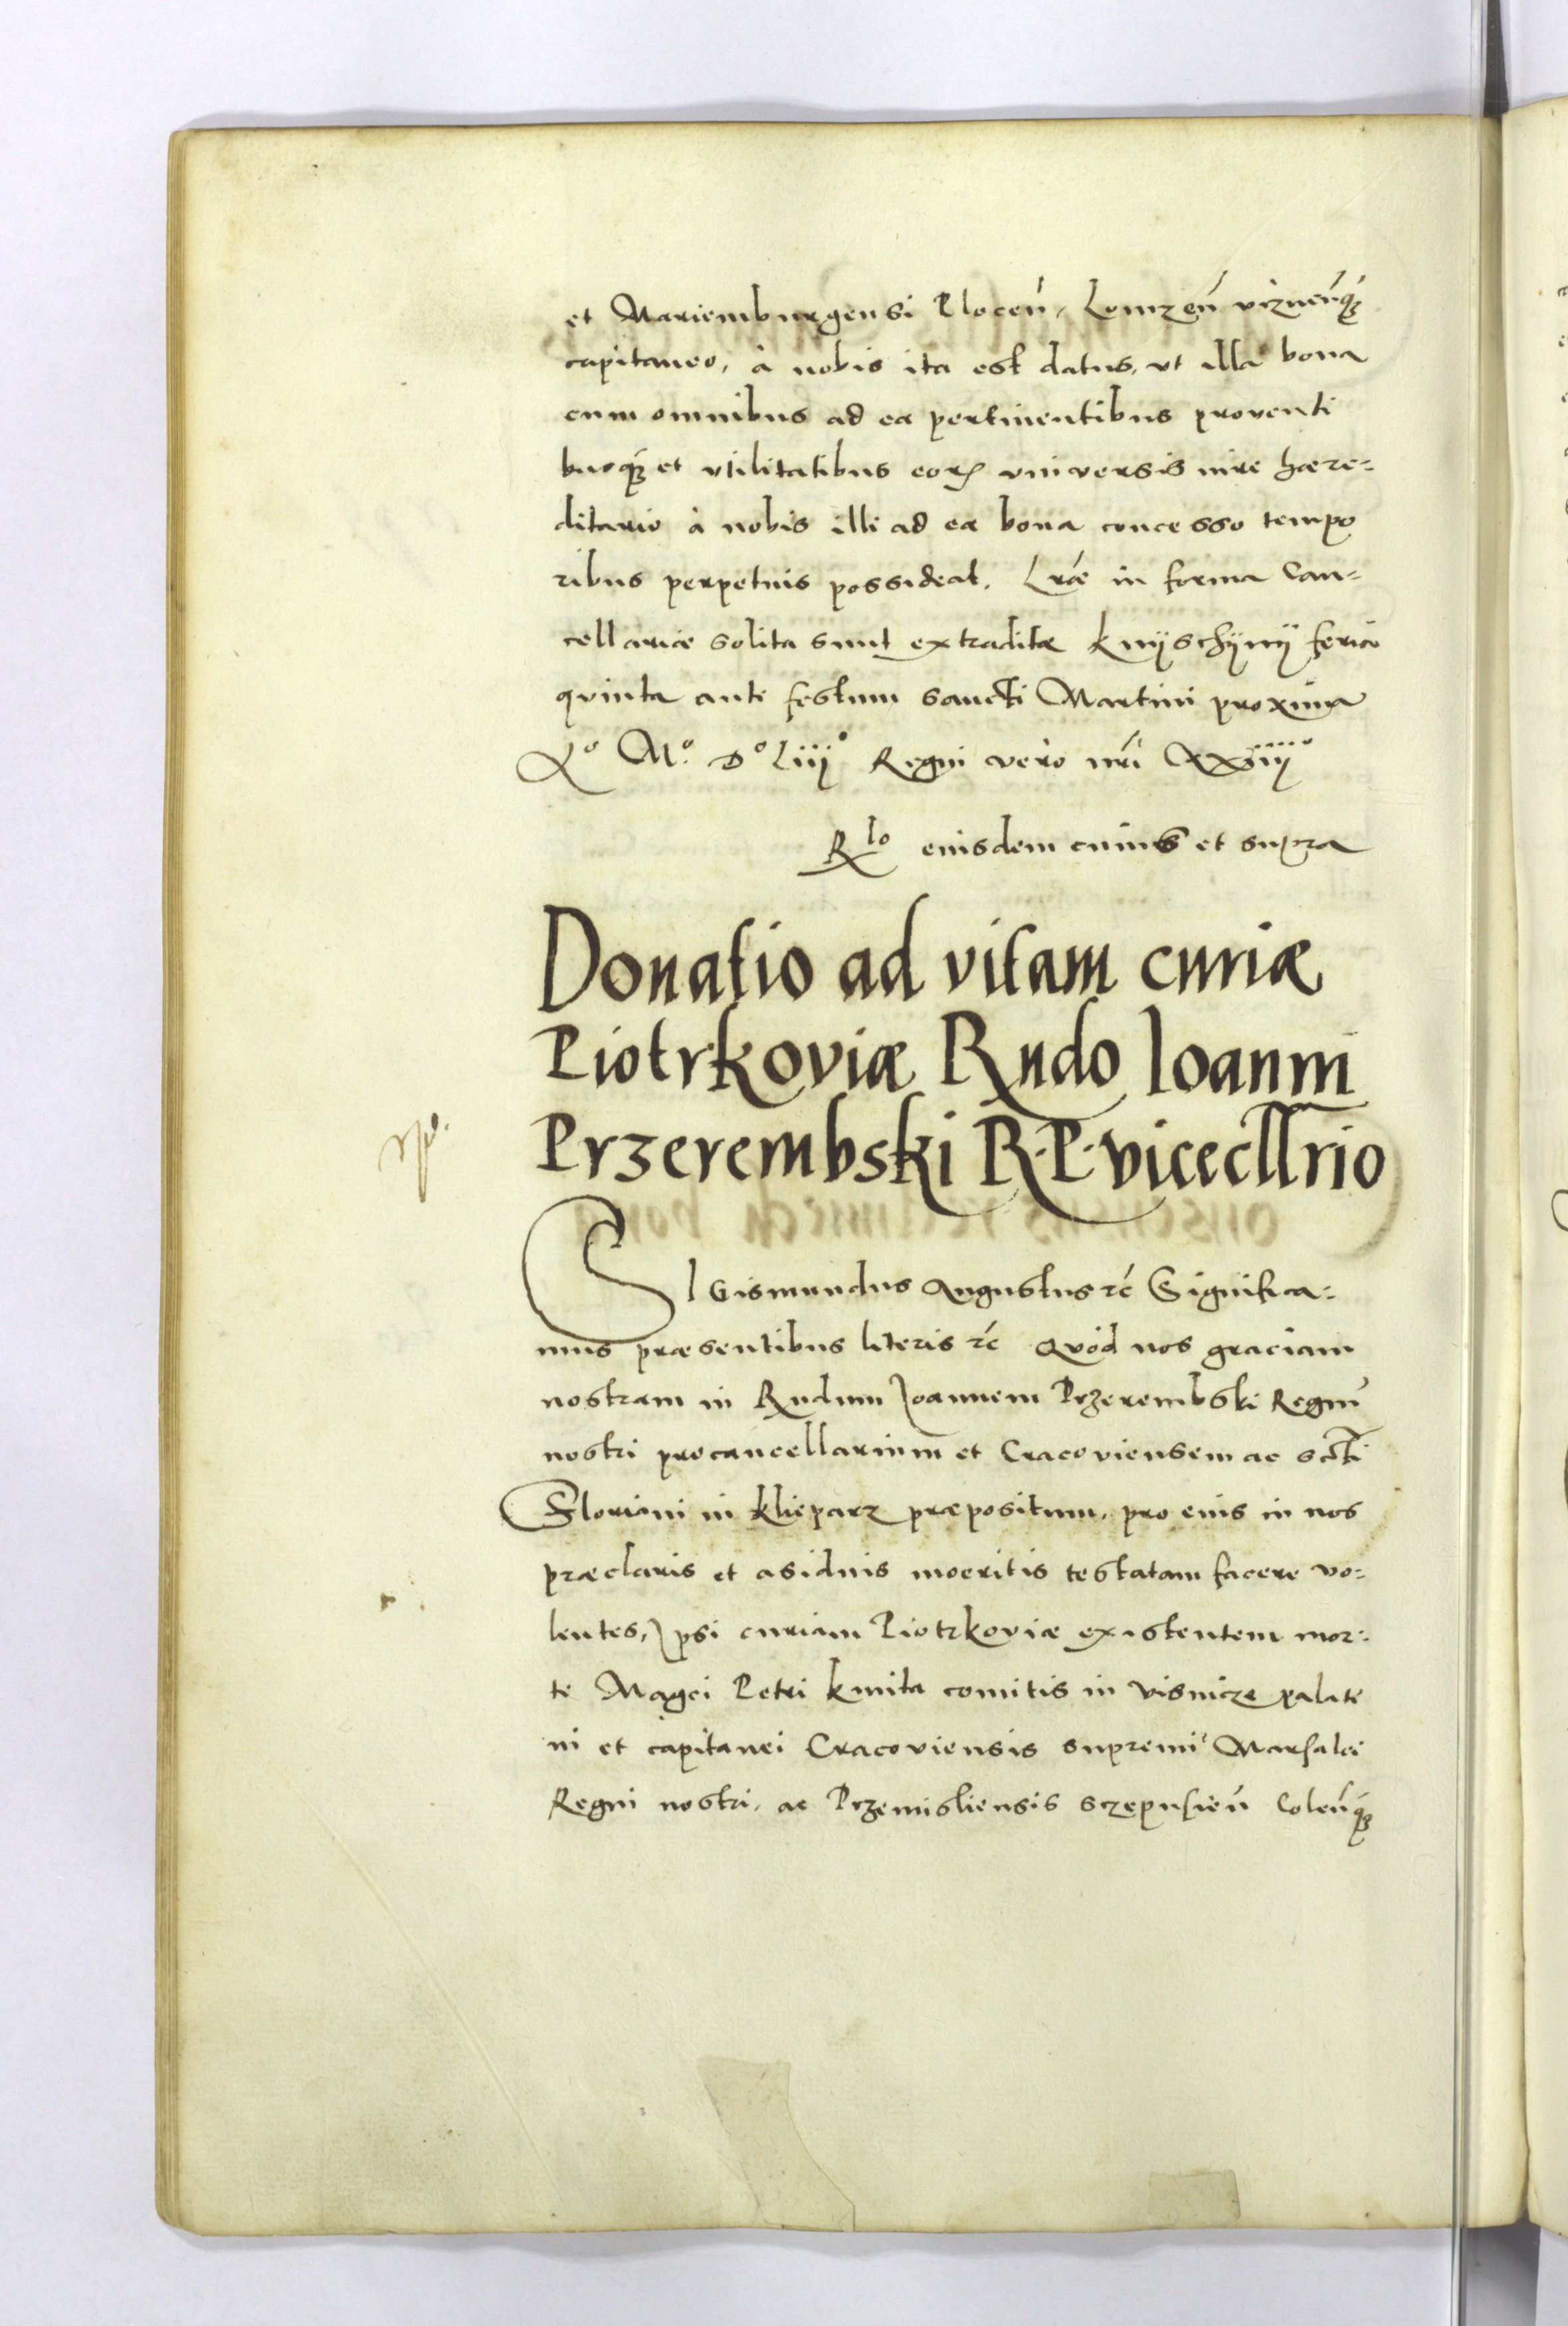 et Mariemburgensi Ploceń, Lomzeń vizneńq́ꝫ
capitaneo, à nobis ita est datus, vt illa bona
cum omnibus ad ea pertinentibus proventi
busq́ꝫ et vtilitatibus eorꝝ vniversis iure hære=
ditario à nobis illi ad ea bona concesso tempo
ribus perpetuis possideat. Lræ in forma Can=
cellariæ solita sunt extraditæ Knÿschÿnÿ feria
qvinta ante festum sancti Martini proxima
Aº Mº Dº Liijº Regni vero nrí XXiiijº
Rlo eiusdem cuius et supra
Donatio ad vitam curiæ
Piotrkoviæ Rndo Ioanni
Przerembski R. P. vicecllrio
SIGismundus Augustus ɾc̃ Significa=
mus præsentibus literis ɾc̃ Qvòd nos graciam
nostram in Rndum Joannem Przerembski Regni
nostri procancellarium et Cracoviensem ac scti
Floriani in Klieparz præpositum, pro eius in nos
præclaris et asiduis moeritis testatam facere vo=
lentes, Jpsi curiam Piotrkoviæ existentem mor=
te Magci Petri Kmita comitis in Visnicze palati
ni et capitanei Cracoviensis supremi Marsalci
Regni nostri, ac Przemisliensis Sczepusień Coleńq́ꝫ